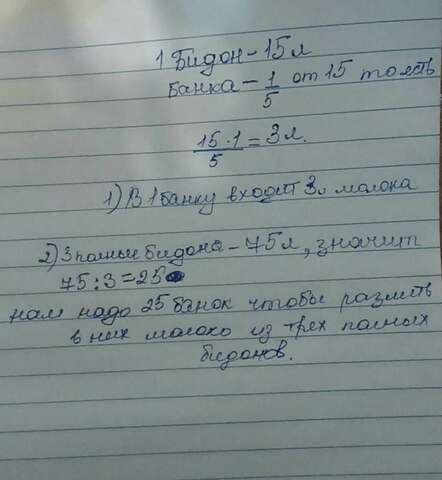 1 Бидон - 15л
Банка - 1/5 от 15 то есть
15·1/5 = 3л.
1) В 1 банку входит 3л молока
2) 3 полные бидона - 75л, значит
75:3=25
нам надо 25 банок чтобы разлить
в них молоко из трех полных
бидонов.